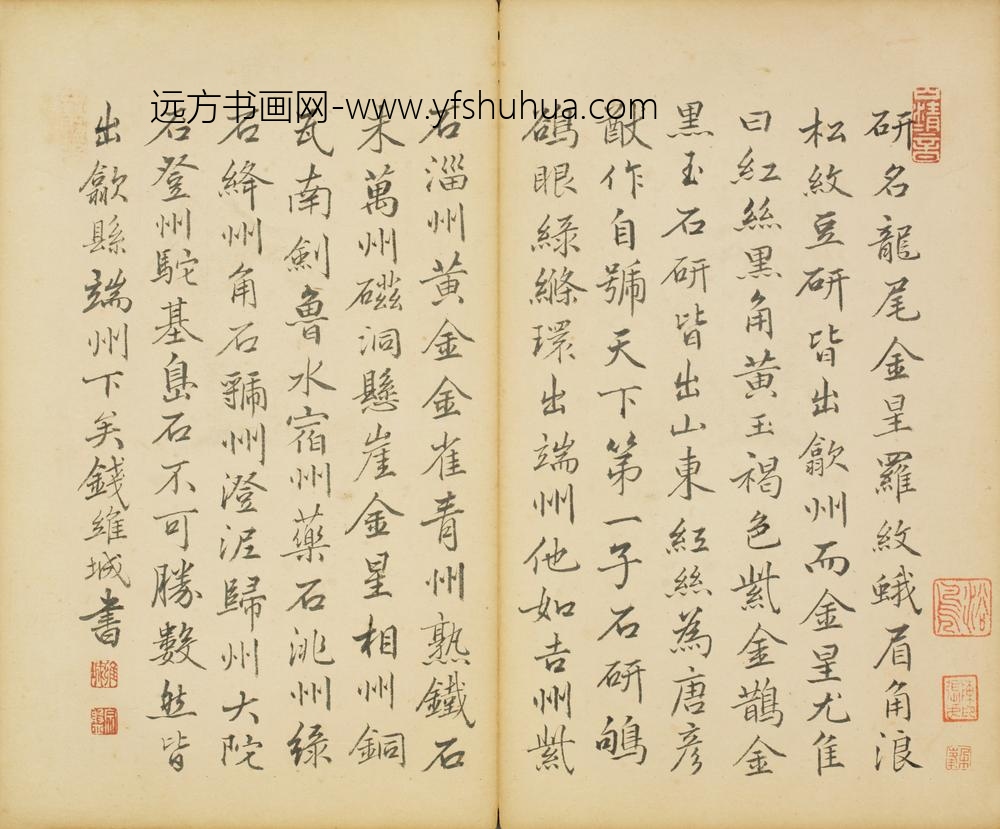 远方书画网-www.yfshuhua.com
研名龍尾金星羅紋蛾眉角浪
松紋豆研皆出歙州而金星尤佳
曰紅絲黒角黃玉褐色紫金鵲金
黒玉石研皆出山東紅絲為唐彦
猷作自號天下第一子石研鴝
鵒眼綠絛環出端州他如吉州紫
石淄州黄金金雀青州熟鐵石
朱萬州磁洞懸崖金星相州銅
瓦南劍魯水宿州藥石洮州綠
石絳州角石虢州澄泥歸州大陀
石登州駝基島石不可勝數然皆
出歙縣端州下矣錢維城書